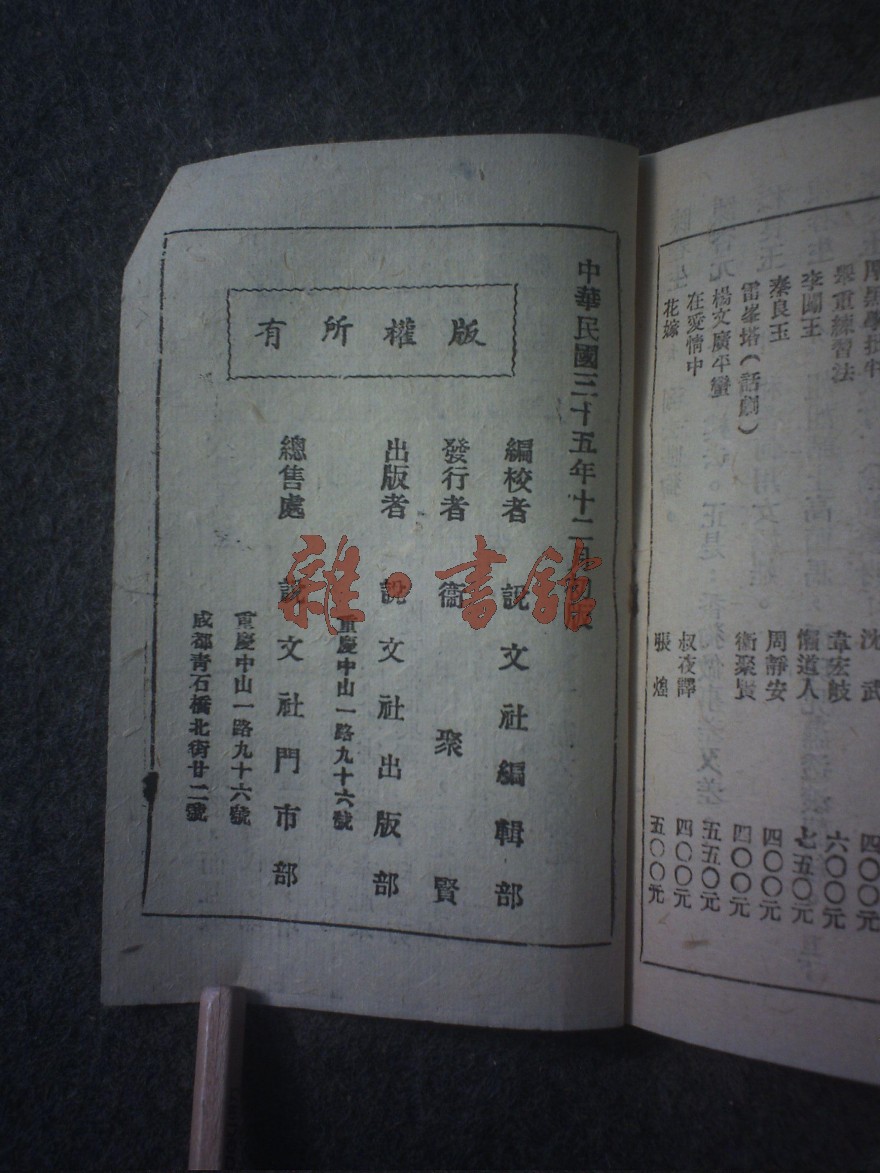 厚黑學批判 沈武 四〇〇元
舉重練習法 韋宏岐 六〇〇元
李闖王 懶道人 七五〇元
秦良玉 周靜安 四〇〇元
雷峯塔（話劇） 衛聚賢 四〇〇元
楊文廣平蠻 五五〇元
在愛情中 叔夜譯 四〇〇元
花嫁 張煌 五〇〇元
中華民國三十五年十二月 版
版權所有
編校者 說文社編輯部
發行者 衞聚賢
出版者 說文社出版部
重慶中山一路九十六號
總售處 說文社門市部
重慶中山一路九十六號
成都青石橋北街廿二號
雜·書館